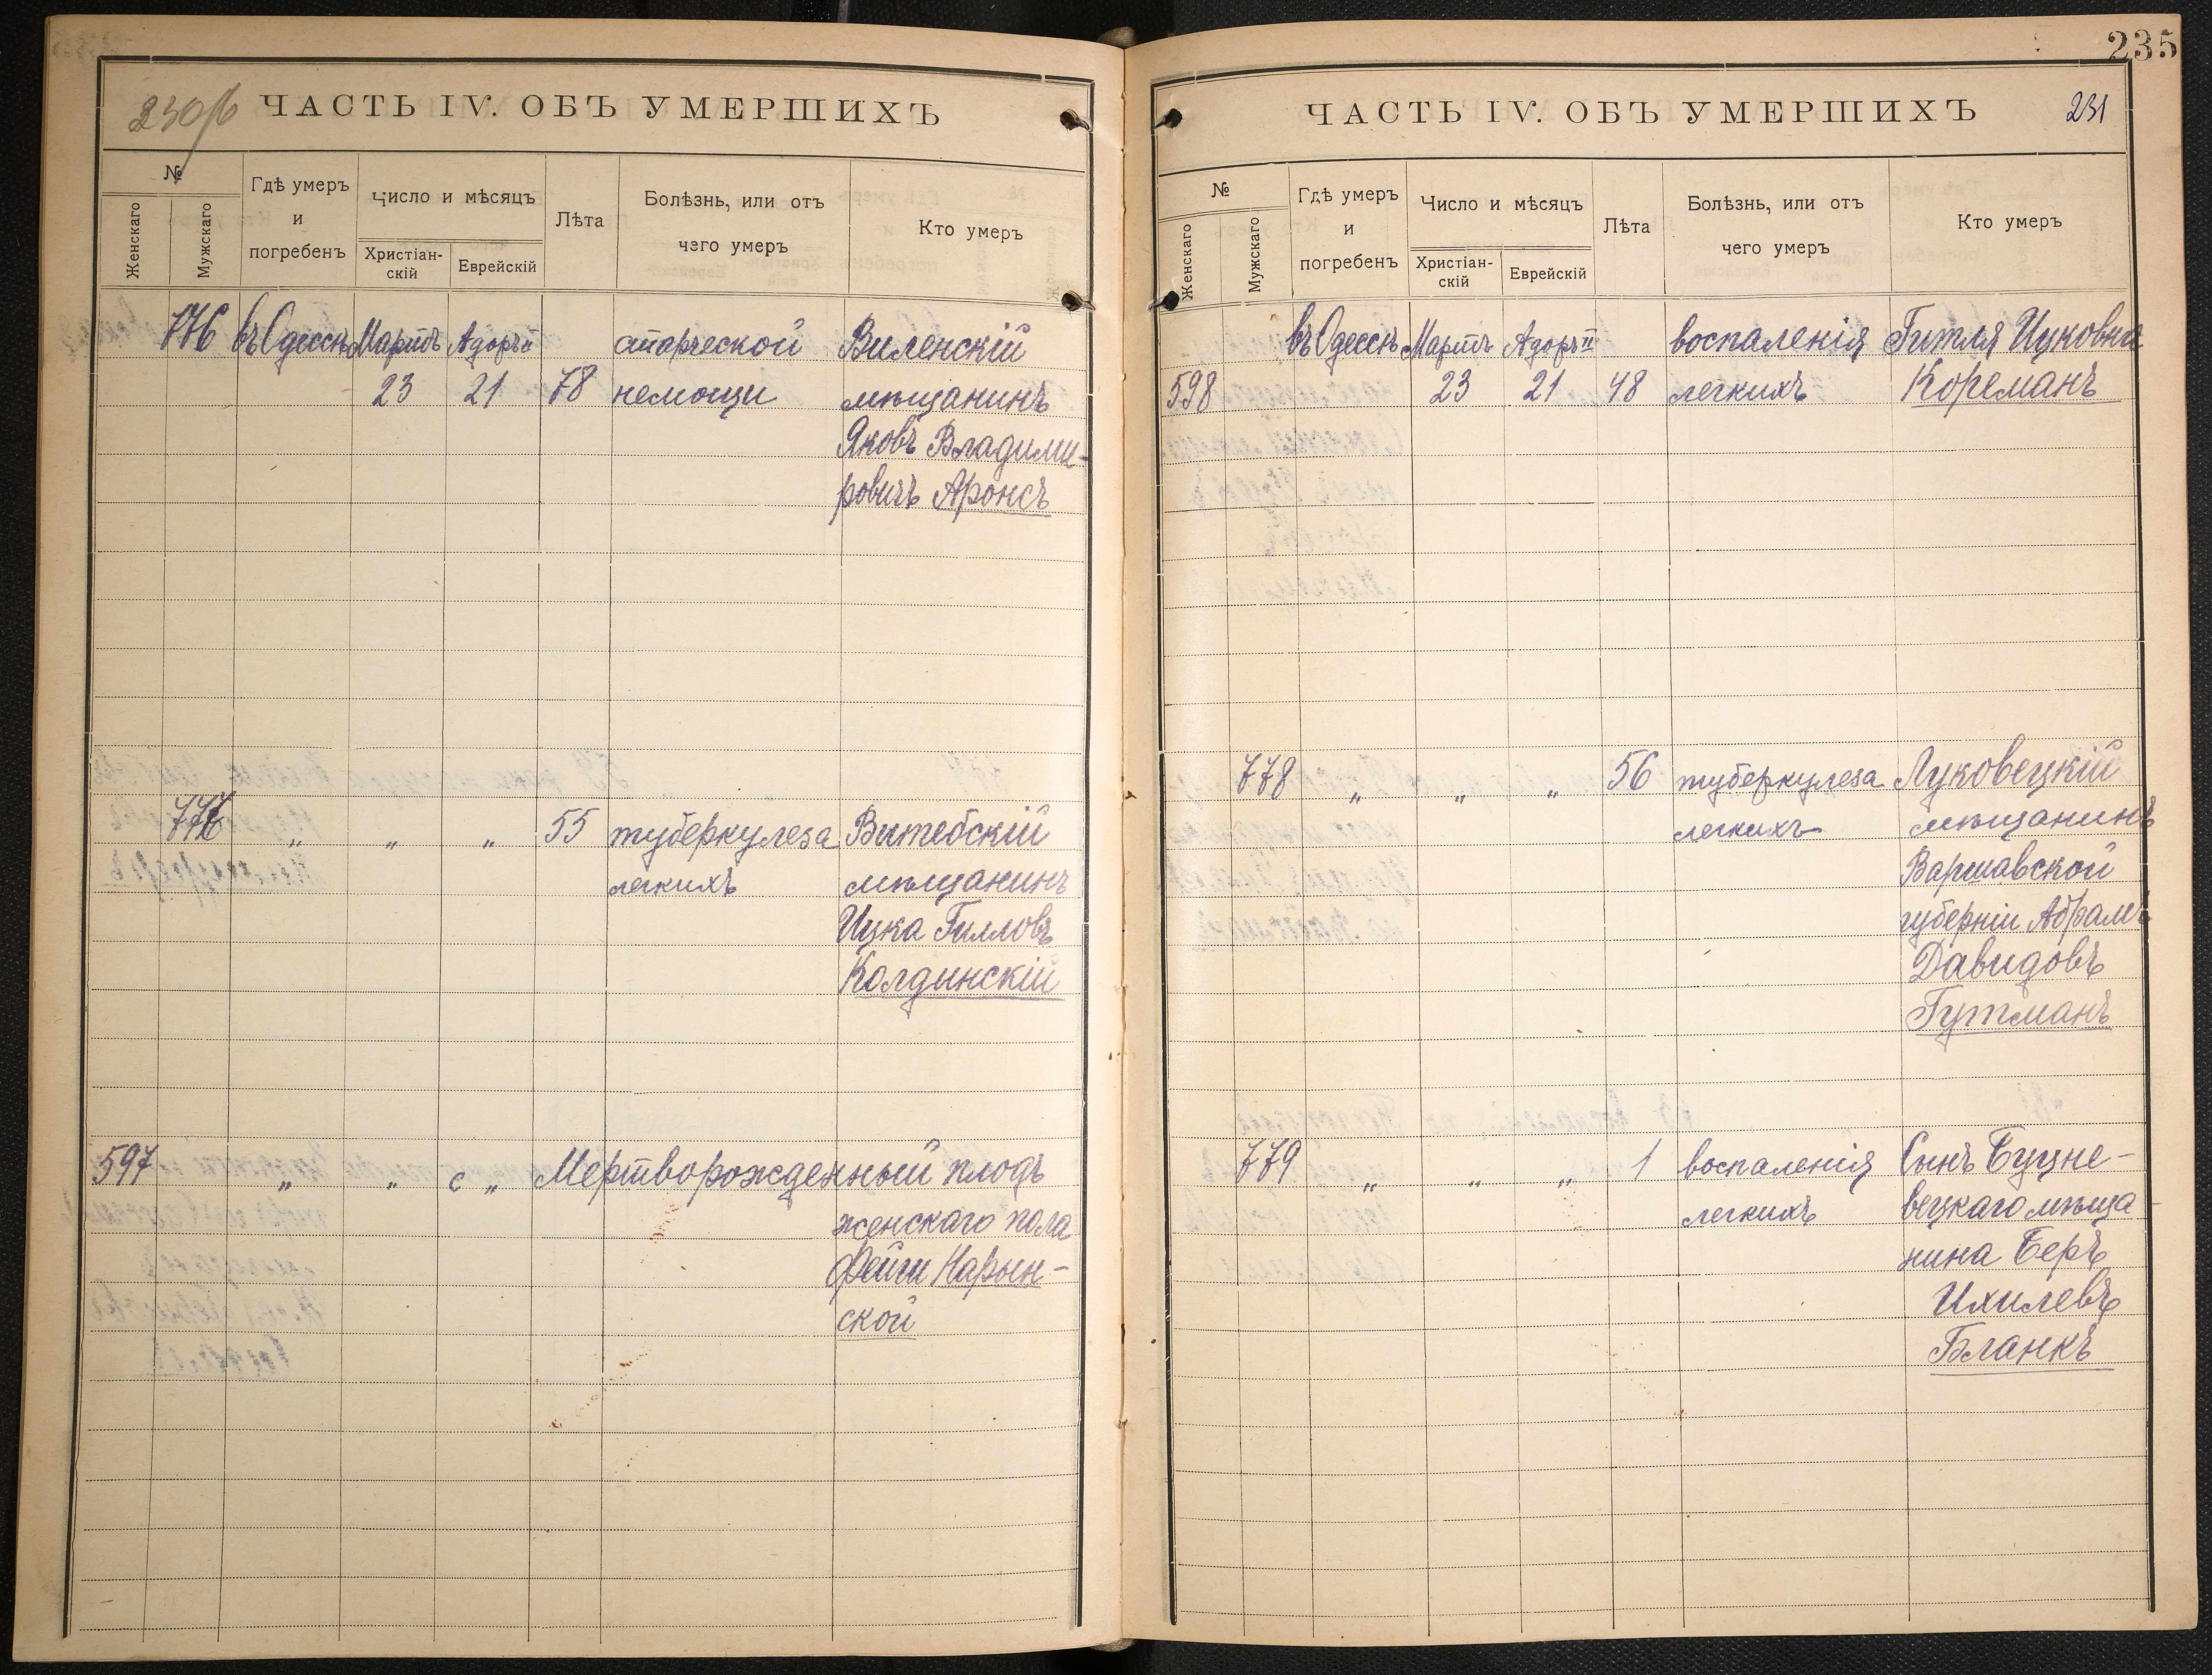 235
230/б
ЧАСТЬ IV. ОБЪ УМЕРШИХЪ
№
Женскаго
Мужскаго
Гдѣ умеръ
и
погребенъ
Число и мѣсяцъ
Христіан-
скій
Еврейскій
Лѣта
Болѣзнь, или отъ
чего умеръ
Кто умеръ
776 въ Одессѣ Мартъ Адоръ II старческой Виленскій
23 21 78 немощи мѣщанинъ
Яковъ Владими-
ровичъ Аронсъ
777 „ „ „ 55 туберкулеза Витебскій
легкихъ мѣщанинъ
Ицка Гилловъ
Колдинскій
597 „ „ с „ Мертворожденный плодъ
женскаго пола
Фейги Нарын-
ской
ЧАСТЬ IV. ОБЪ УМЕРШИХЪ
231
№
Женскаго
Мужскаго
Гдѣ умеръ
и
погребенъ
Число и мѣсяцъ
Христіан-
скій
Еврейскій
Лѣта
Болѣзнь, или отъ
чего умеръ
Кто умеръ
въ Одессѣ Мартъ Адоръ II воспаленія Гитля Ицковна
598 23 21 48 легкихъ Кореманъ
778 „ „ „ 56 туберкулеза Луковецкій
легкихъ мѣщанинъ
Варшавской
губерніи Абрамъ
Давидовъ
Гутманъ
779 „ „ „ 1 воспаленія Сынъ Буцне-
легкихъ вецкаго мѣща-
нина Беръ
Ихилевъ
Бланкъ